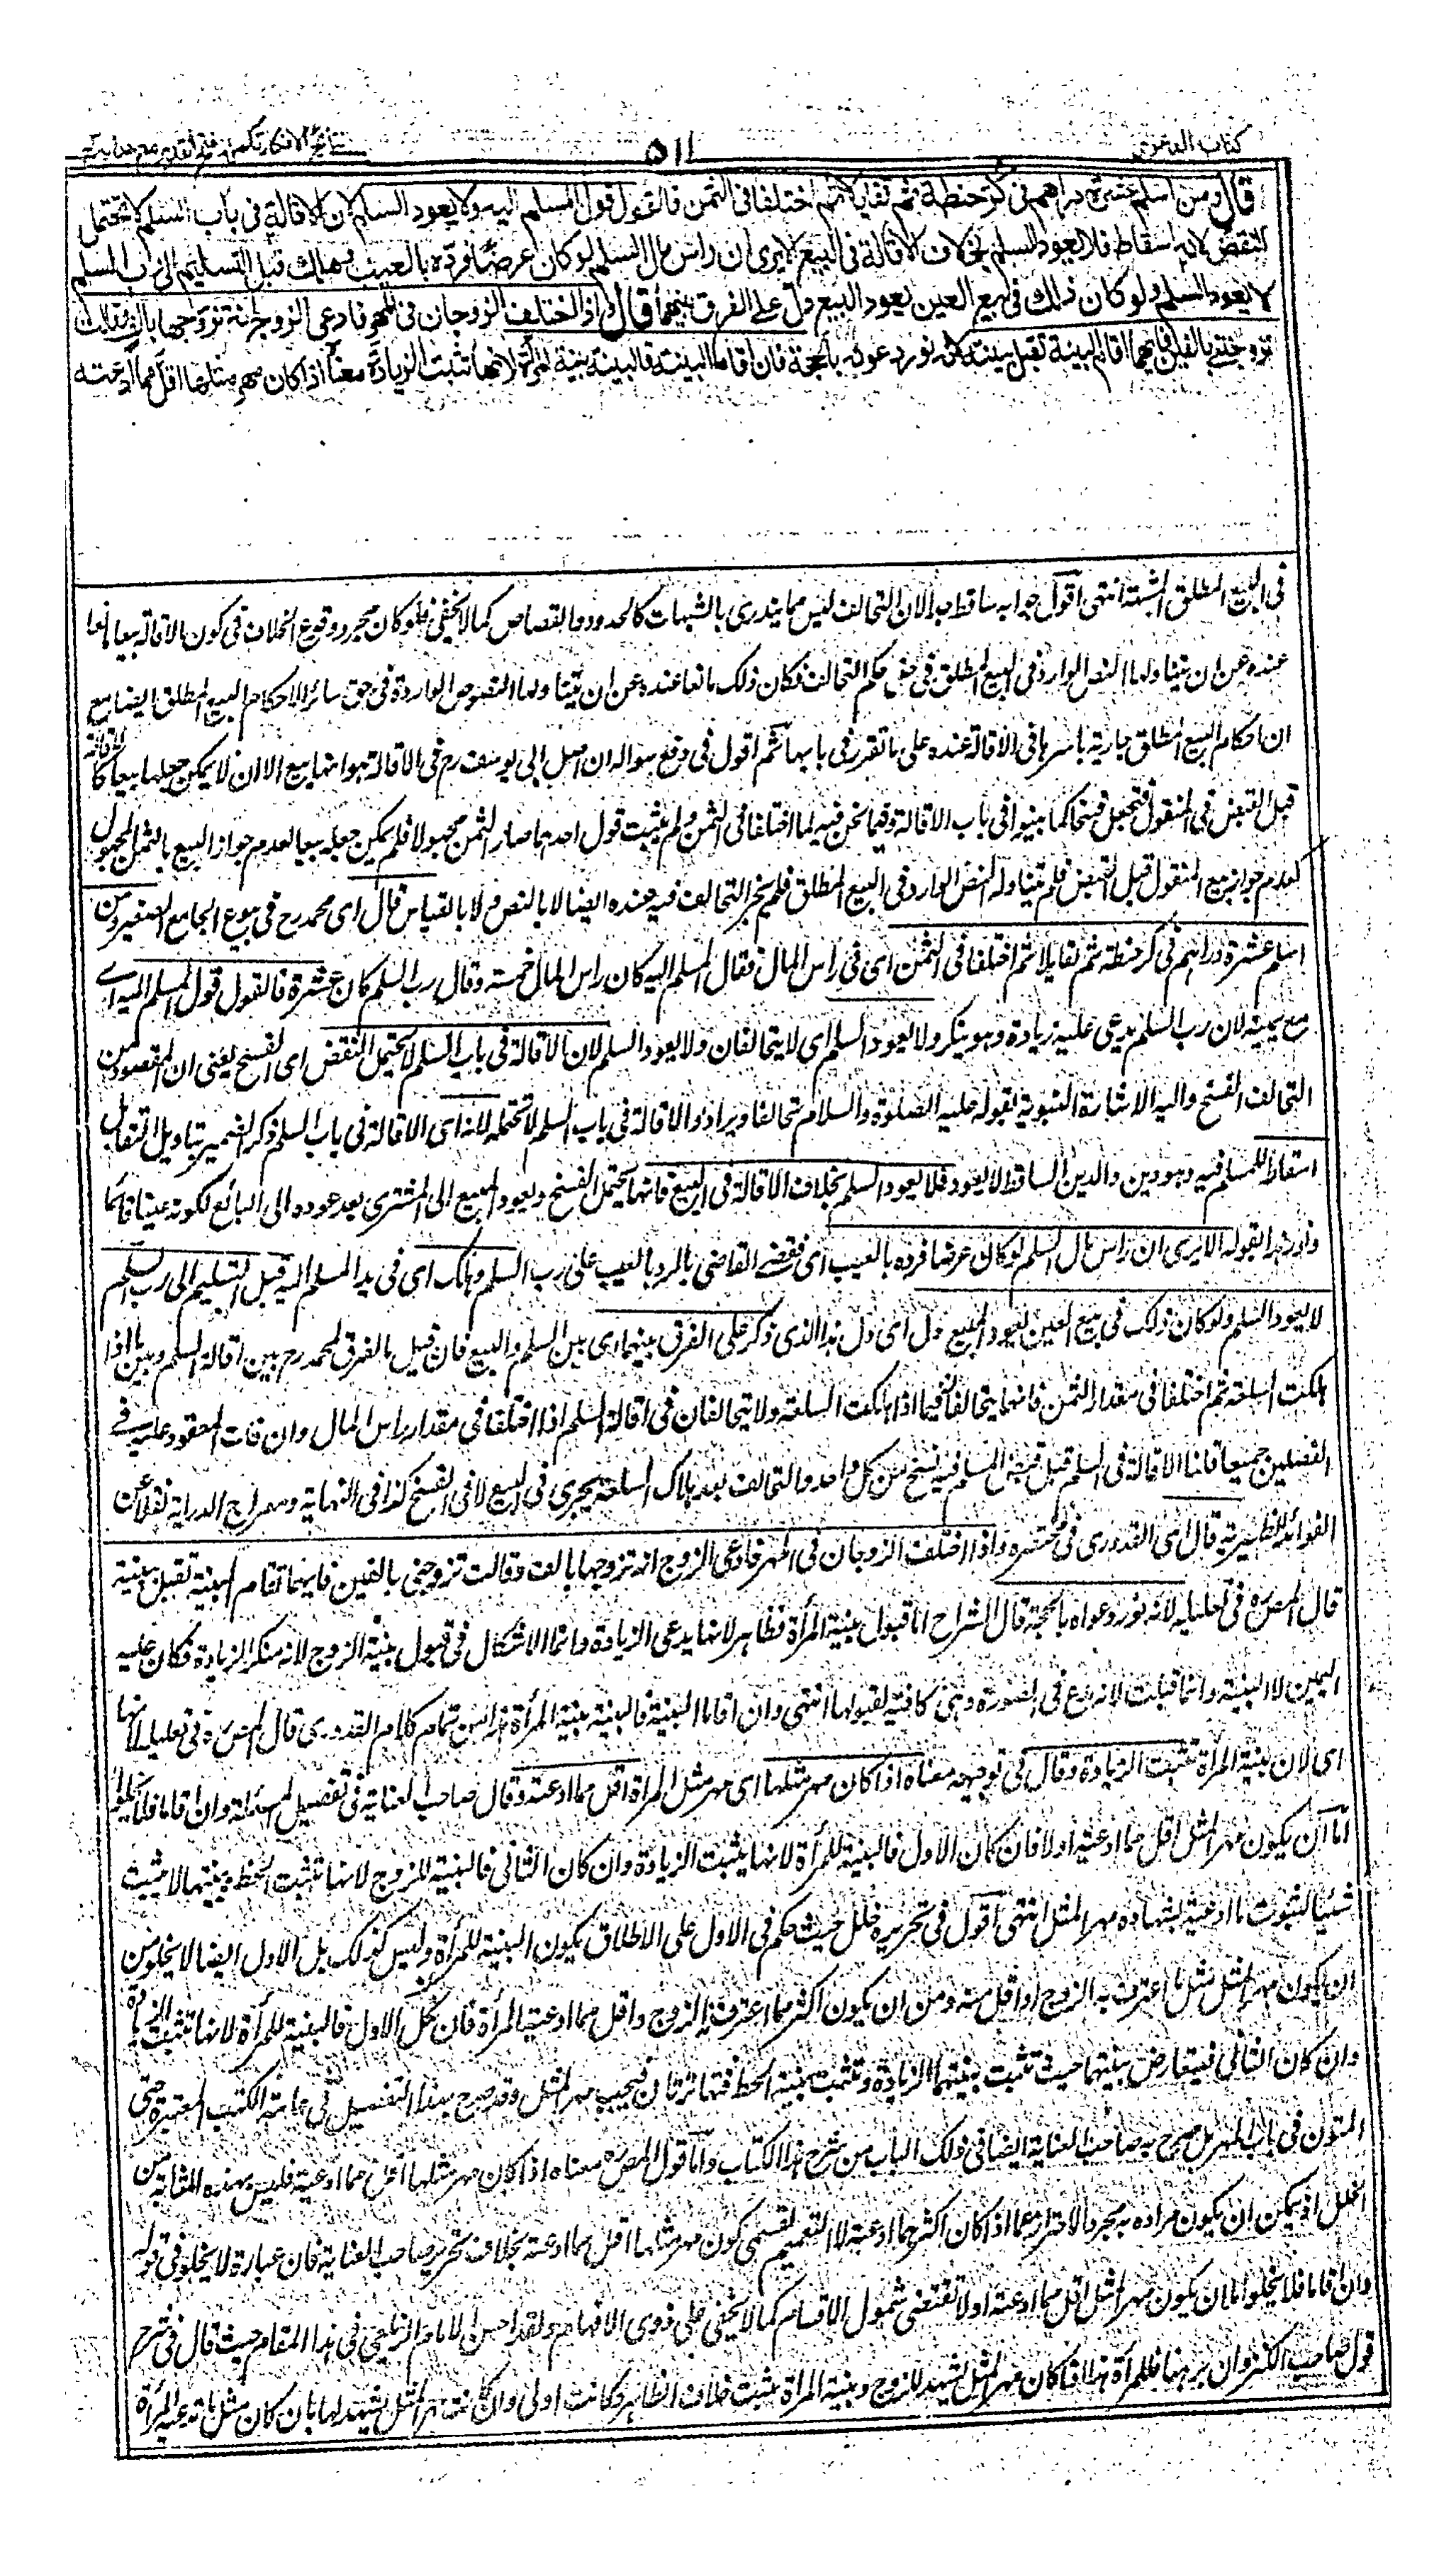 كتاب الدعوى
٥١١
نتائج الافكار تكملة فتح القدير مع هداية
قال ومن اسلم عشرة دراهم فى كر حنطة ثم تقايلا ثم اختلفا فى الثمن فالقول قول المسلم اليه ولا يعود السلم لان الاقالة فى باب السلم لا تحتمل
النقض لانه اسقاط فلا يعود السلم بخلاف الاقالة فى البيع الا يرى ان راس مال السلم لو كان عرضا فرده بالعيب وهلك قبل التسليم الى رب السلم
لا يعود السلم ولو كان ذلك فى بيع العين يعود البيع دل على الفرق بينهما قال واذا اختلف الزوجان فى المهر فادعى الزوج انه تزوجها بالف وقالت
تزوجتنى بالفين فايهما اقام البينة تقبل بينته لانه نور دعواه بالحجة فان اقاما البينة فالبينة بينة المرأة لانها تثبت الزيادة معناه اذا كان مهر مثلها اقل مما ادعته
فى البيع المطلق الشبهة انتهى اقول جوابه ساقط جدا لان التحالف ليس مما يندرى بالشبهات كالحدود والقصاص كما لا يخفى فلو كان مجرد وقوع الخلاف فى كون الاقالة بيعا مانعا
عنده عن ان يتناولها النص الوارد فى البيع المطلق فى حق حكم التحالف لكان ذلك مانعا عنده عن ان يتناولها النصوص الواردة فى حق سائر الاحكام البيع المطلق ايضا مع
ان احكام البيع المطلق جارية باسرها فى الاقالة عنده على ما تقرر فى بابها ثم اقول فى دفع سؤاله ان اصل ابى يوسف رح فى الاقالة هو انها بيع الا ان لا يمكن جعلها بيعا كالاقالة
قبل القبض فى المنقول فتجعل فسخا كما بينوا فى باب الاقالة وفيما نحن فيه لما اختلفا فى الثمن ولم يثبت قول احدهما صار الثمن مجهولا فلم يمكن جعله بيعا لعدم جواز البيع بالثمن المجهول
كعدم جواز بيع المنقول قبل القبض فلم يتناوله النص الوارد فى البيع المطلق فلم يجز التحالف فيه عنده ايضا لا بالنص ولا بالقياس قال اى محمد رح فى بيوع الجامع الصغير ومن
اسلم عشرة دراهم فى كر حنطة ثم تقايلا ثم اختلفا فى الثمن اى فى راس المال فقال المسلم اليه كان راس المال خمسة وقال رب السلم كان عشرة فالقول قول المسلم اليه اے
مع يمينه لان رب السلم يدعى عليه زيادة وهو ينكر ولا يعود السلم اى لا يتحالفان ولا يعود السلم لان الاقالة فى باب السلم لا تحتمل النقض اى الفسخ يعنى ان المقصود من
التحالف الفسخ واليه الاشارة النبوية بقوله عليه الصلوة والسلام تحالفا وترادا والاقالة فى باب السلم لا تحتمله لانه اى الاقالة فى باب السلم ذكر الضمير بتاويل التقايل
اسقاط للمسلم فيه وهو دين والدين الساقط لا يعود فلا يعود السلم بخلاف الاقالة فى البيع فانها تحتمل الفسخ ويعود المبيع الى المشترى بعد عوده الى البائع لكونه عينا قائما
واورد بقوله الا يرى ان راس مال السلم لو كان عرضا فرده بالعيب اى فقضى القاضى بالرد بالعيب على رب السلم وهلك اى فى يد المسلم اليه قبل التسليم الى رب السلم
لا يعود السلم ولو كان ذلك فى بيع العين يعود البيع دل اى دل هذا الذى ذكر على الفرق بينهما اى بين السلم والبيع فان قيل ما الفرق لمحمد رح بين اقالة السلم وبين ما اذا
هلكت السلعة ثم اختلفا فى مقدار الثمن فانهما يتحالفان فيما اذا هلكت السلعة ولا يتحالفان فى اقالة السلم اذا اختلفا فى مقدار راس المال وان فات المعقود عليه فے
الفصلين جميعا قلنا الاقالة فى السلم قبل قبض المسلم فيه فسخ من كل واحد والتحالف بعد هلاك السلعة يجرى فى البيع لا فى الفسخ كذا فى النهاية ومعراج الدراية نقلا عن
الفوائد الظهيرية قال اى القدورى فى مختصره واذا اختلف الزوجان فى المهر فادعى الزوج انه تزوجها بالف وقالت تزوجنى بالفين فايهما اقام البينة تقبل بينته
قال المصره فى تعليله لانه نور دعواه بالحجة قال الشراح اما قبول بينة المرأة فظاهر لانها يدعى الزيادة وانما الاشكال فى قبول بينة الزوج لانه منكر الزيادة فكان عليه
اليمين لا البينة وانما قبلت لانه مدع فى الصورة وهى كافية لقبولها انتهى وان اقاما البينة فالبينة بينة المرأة هذا من تمام كلام القدورى قال المصره فى تعليله لانها
اى لان بينة المرأة تثبت الزيادة وقال فى توجيهه معناه اذا كان مهر مثلها اى مهر مثل المرأة اقل مما ادعته وقال صاحب العناية فى تفصيل المسئلة وان اقاما فلا يخلوا
اما ان يكون مهر المثل اقل مما ادعته اولا فان كان الاول فالبينة للمرأة لانها يثبت الزيادة وان كان الثانى فالبينة للزوج لانها تثبت الحط وبينتها لا تثبت
شيئا لثبوت ما ادعته بشهادة مهر المثل انتهى اقول فى تحريره خلل حيث حكم فى الاول على الاطلاق بكون البينة للمرأة وليس كذلك بل الاول ايضا لا يخلو من
ان يكون مهر المثل مثل ما اعترف به الزوج او اقل منه ومن ان يكون اكثر مما اعترف به الزوج واقل مما ادعته المرأة فان كان الاول فالبينة للمرأة لانها تثبت الزيادة
وان كان الثانى فيتعارض بينتهما حيث تثبت بينتها الزيادة وتثبت بينته الحط فتهاترتان فيجب مهر المثل وقد صرح بهذا التفصيل فى عامة الكتب المعتبرة حتى
المتون فى باب المهر بل صرح به صاحب العناية ايضا فى ذلك الباب من شرح هذا الكتاب واما قول المصره معناه اذا كان مهر مثلها اقل مما ادعته فليس بهذه المثابة من
الخلل اذ يمكن ان يكون مراده به مجرد الاحتراز عما اذا كان اكثر مما ادعته لا التعميم لقسمى كون مهر مثلها اقل مما ادعته بخلاف تحرير صاحب العناية فان عبارة لا يخلو فى قوله
وان اقاما فلا يخلوا اما ان يكون مهر المثل اقل مما ادعته اولا تقتضى شمول الاقسام كما لا يخفى على ذوى الافهام ولقد احسن الامام الزيلعى فى هذا المقام حيث قال فى شرح
قول صاحب الكنز وان برهنا فللمرأة هذا اذا كان مهر المثل يشهد للزوج وبينة المرأة يثبت خلاف الظاهر فكانت اولى وان كان مهر المثل يشهد لها بان كان مثل ما تدعيه المرأة